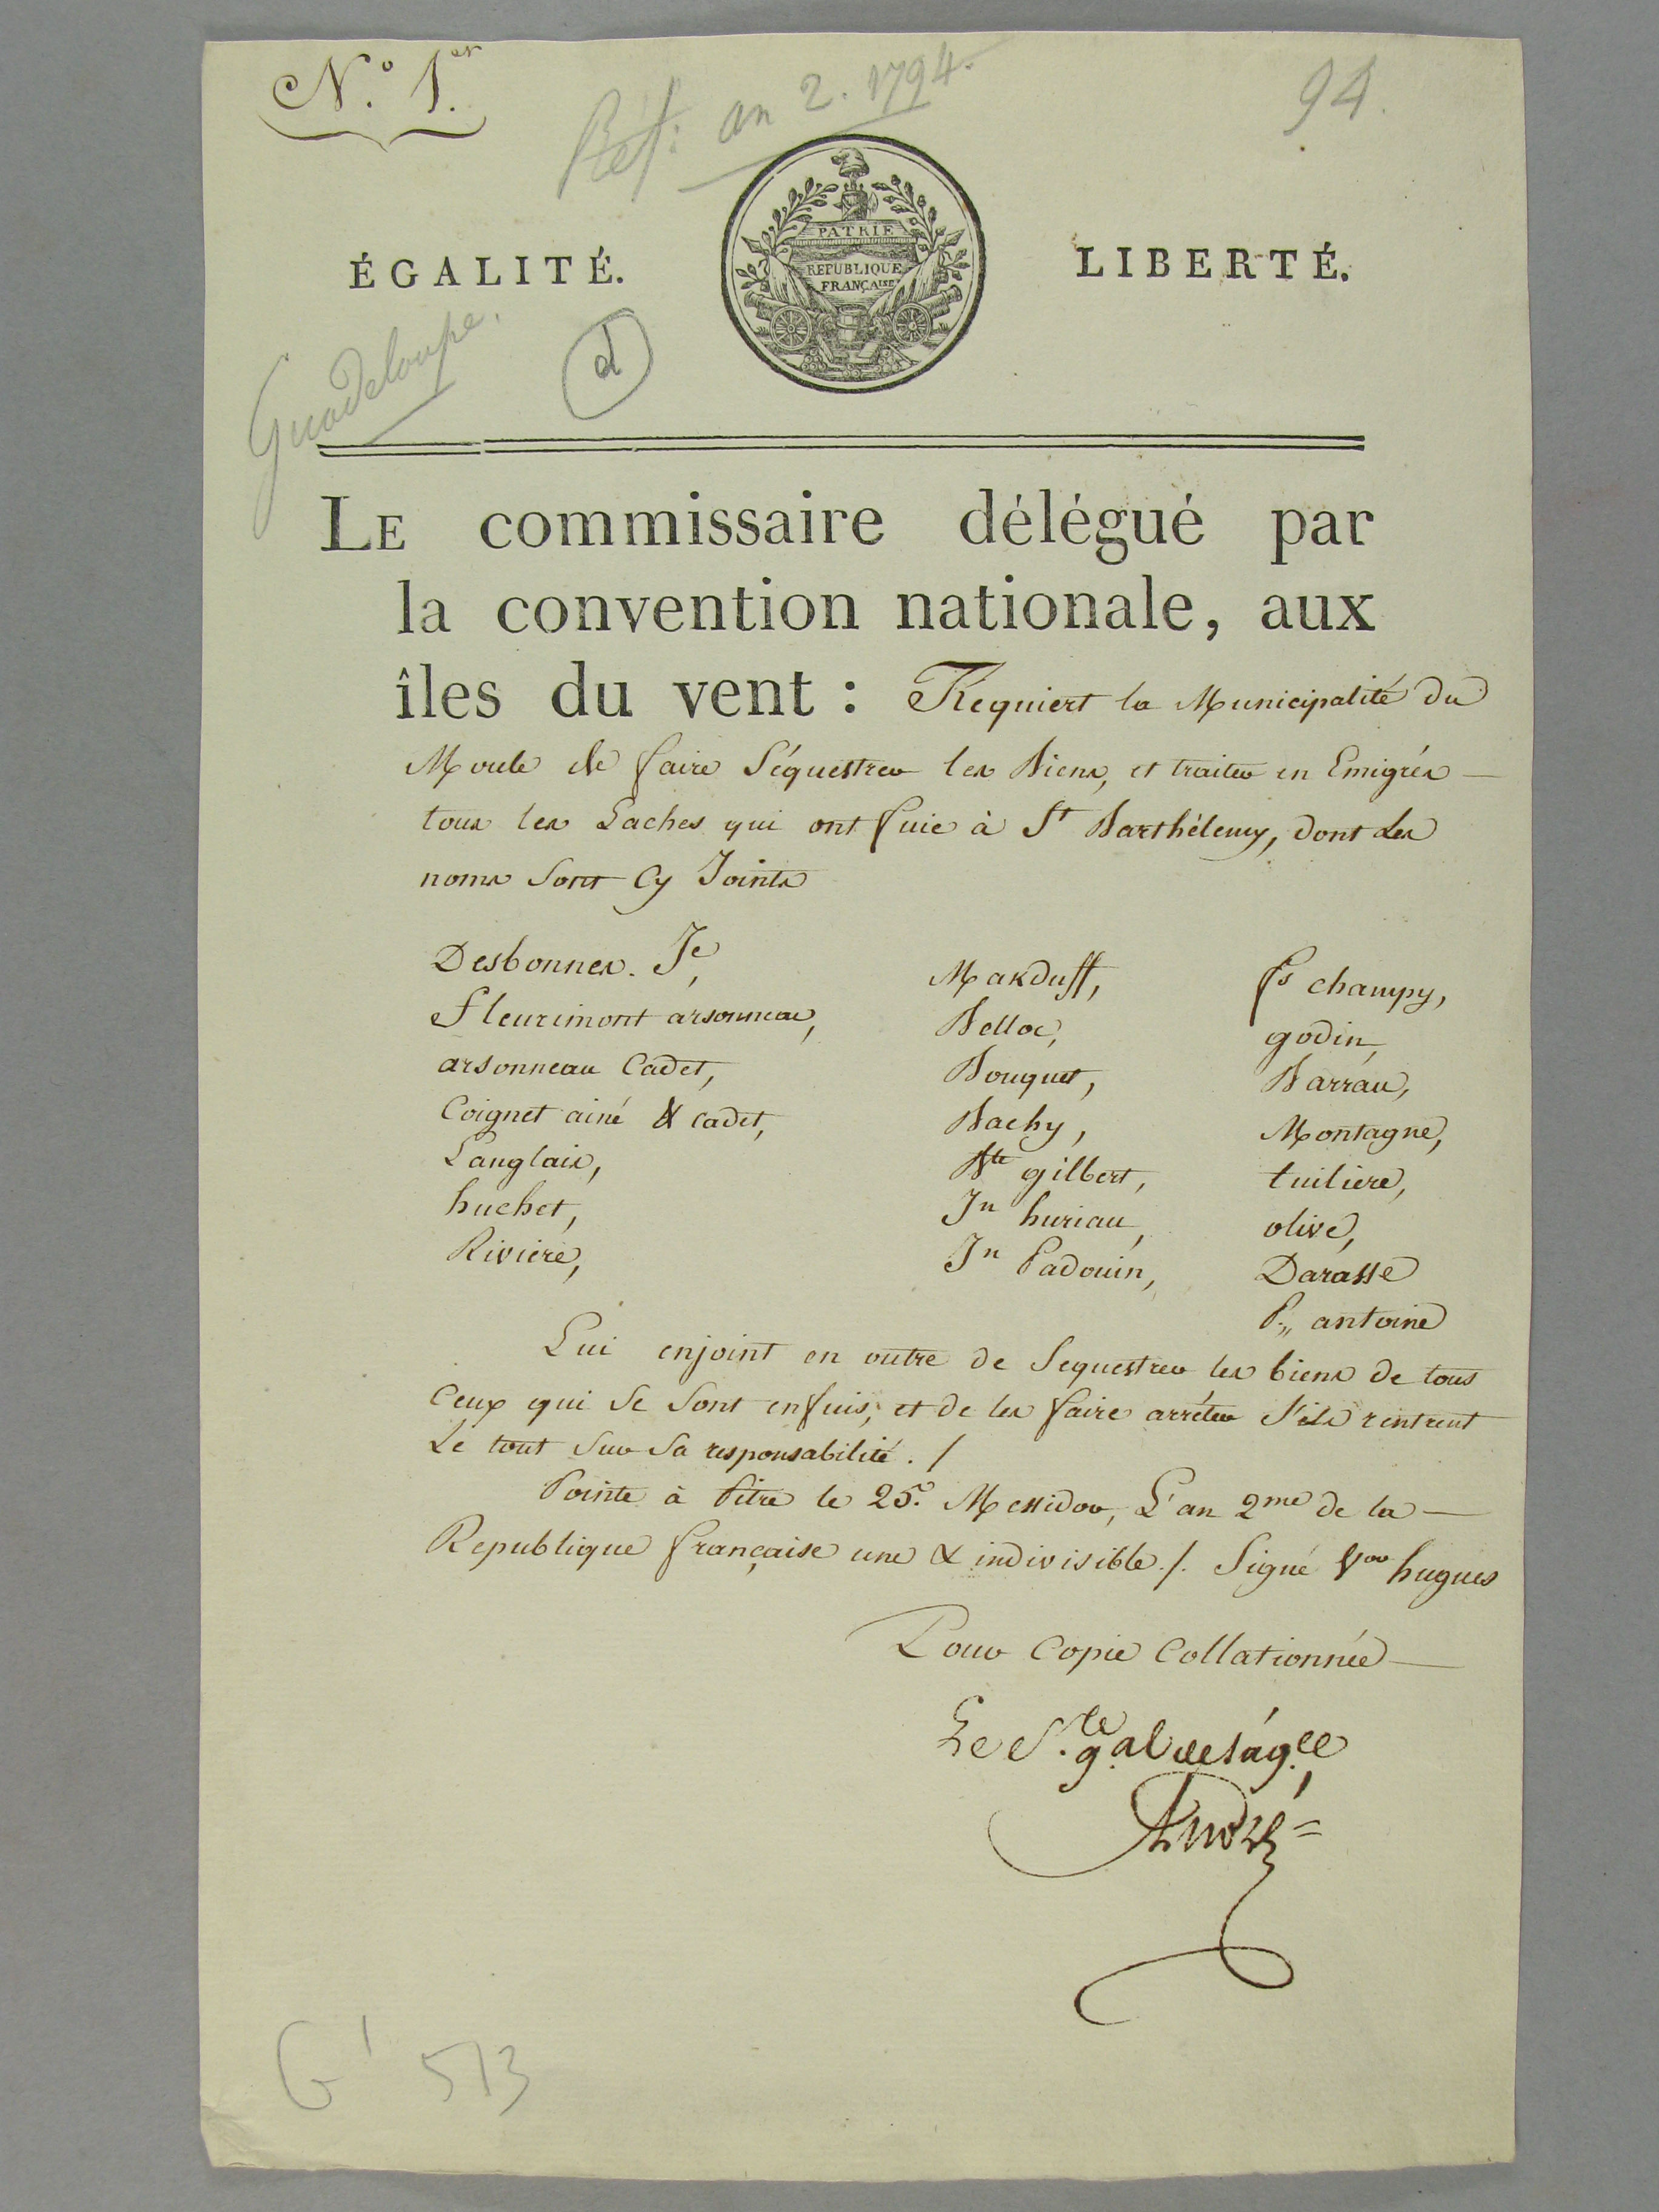 N.º 1.er
Réf: an 2. 1794.
94.
ÉGALITÉ.
PATRIE
REPUBLIQUE
FRANÇAISE
LIBERTÉ.
Guadeloupe.
d
LE commissaire délégué par
la convention nationale, aux
îles du vent : Requiert la Municipalité du
Moule de faire Séquestrer les Biens, et traiter en Emigrés
tous les Laches qui ont fuie à St Barthélemy, dont les
noms Sont Cy Joints
Desbonnes. Je,
fleurimont arsonneau,
arsonneau Cadet,
Coignet ainé & cadet,
Langlais,
huchet,
Riviere,
Makduff,
Belloc,
Bouquet,
Bachy,
Bte gilbert,
Jn huriau,
Jn Padouin,
fs champy,
godin,
Barrau,
Montagne,
tuiliere,
olive,
Darasse
P.,, antoine
Lui enjoint en outre de Sequestrer les biens de tous
Ceux qui Se Sont enfuis, et de les faire arrêter S'ils rentrent
Le tout Sur Sa responsabilité. /
Pointe à Pitre le 25.e Messidor, L'an 2me de la
Republique française une & indivisible /. Signé Vor hugues
Pour Copie Collationnée
Le S.te g.al
André
G1 513